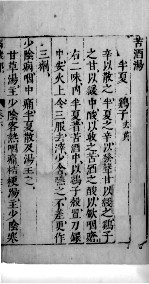 苦酒湯
半夏 鷄子去黃
辛以散之半夏之辛以發聲音甘以緩之鷄子
之甘以緩咽痛酸以收之苦酒之酸以斂咽瘡
右二味內半夏著苦酒中以鷄子殼置刀鐶
中安火上令三沸去滓少少含嚥之不差更作
三劑
少陰病咽中痛半夏散及湯主之
甘草湯主少陰客熱咽痛桔梗湯主少陰寒